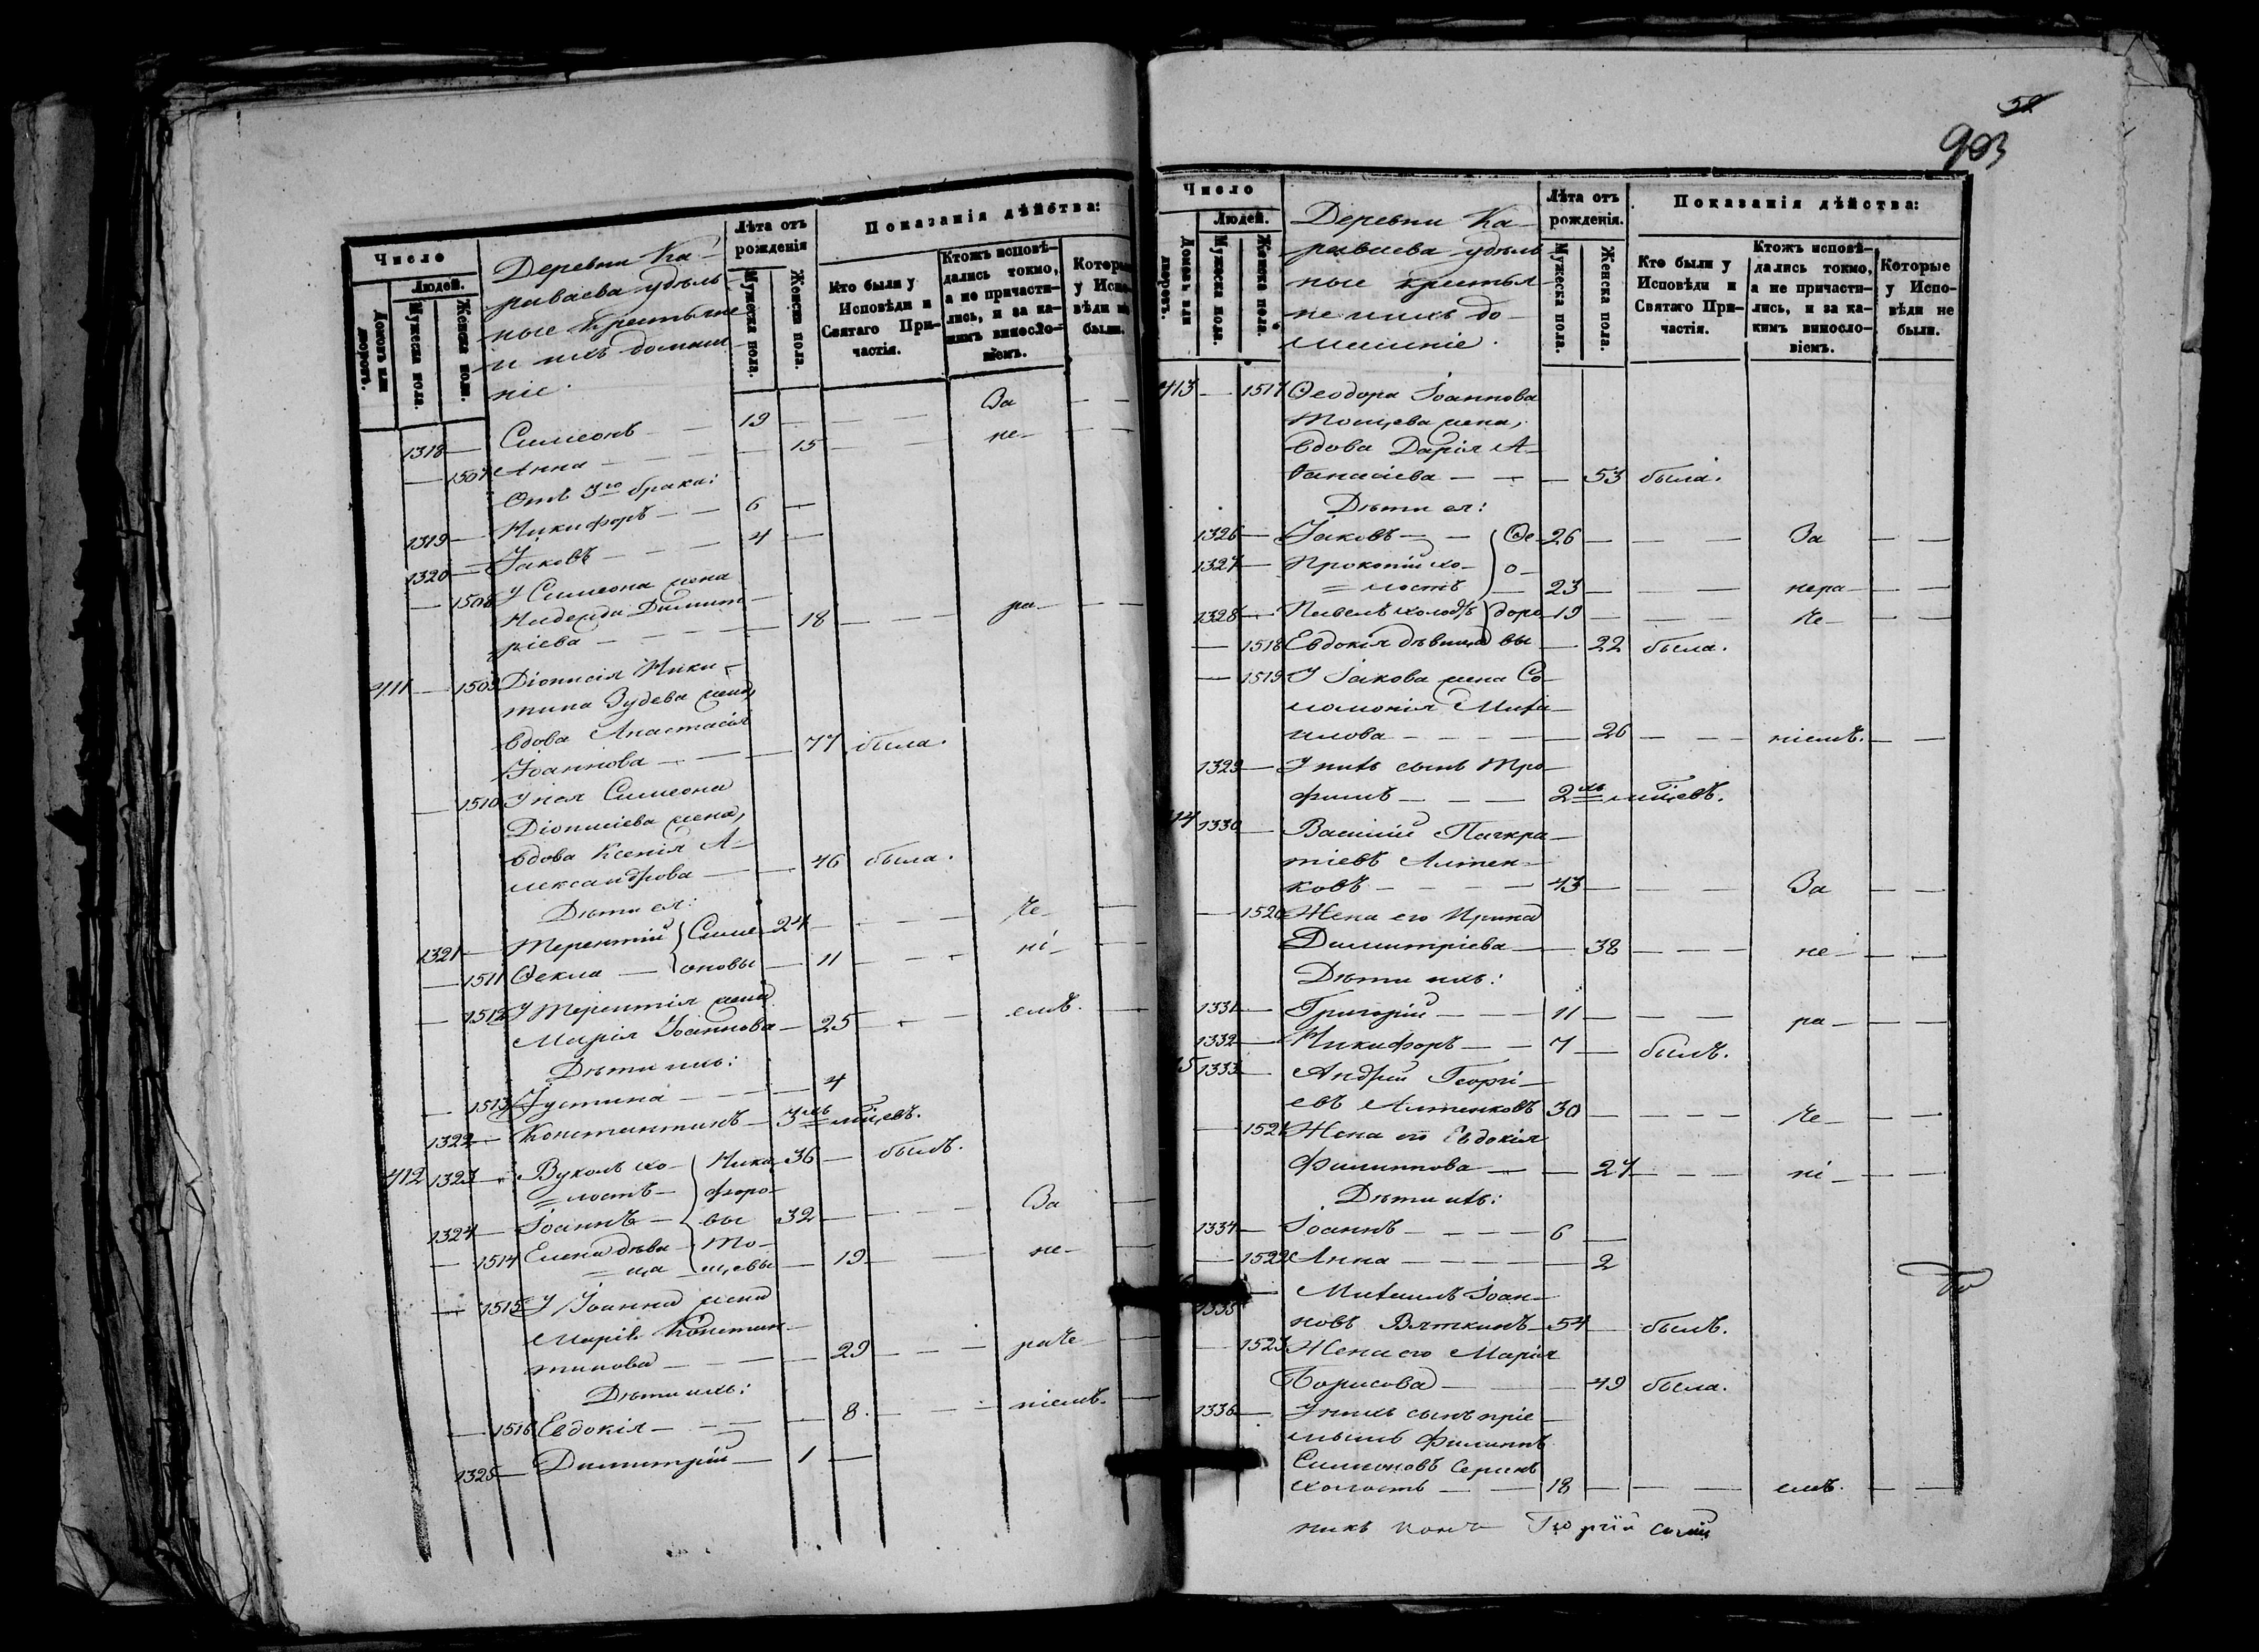 Число
Людей.
Домовъ или дворовъ.
Мужеска пола.
Женска пола.
Деревни Ка-
раваева удѣль-
ные крестьяне
и ихъ домаш-
ніе.
Лѣта отъ рожденія
Мужеска пола.
Женска пола.
Показанія дѣйства:
Кто были у Исповѣди и Святаго При-частія.
Ктожъ исповѣ-дались токмо, а не причасти-лись, и за ка-кимъ виносло-віемъ.
Которые у Испо-вѣди не были.
1318 — Симеонъ — — 19 — — — За — —
— 1507 Анна — — — — 15 — — не- — —
Отъ 3го брака:
1319 — Никифоръ — — 6 —
1320 — Іаковъ — — — 4 —
— 1508 У Симеона жена
Надежда Димит-
ріева — — — — 18 — — — ра- — —
411 — 1509 Діонисія Ники-
тина Зудева жена,
вдова Анастасія
Іоаннова — — — 77 была.
— 1510 У нея Симеона
Діонисіева жена,
вдова Ксенія А-
лександрова — — 46 была.
Дѣти ея:
1321 — Терентій Симе- 24 — — — Че- —
— 1511 Ѳекла — оновы — 11 — — — ні- —
— 1512 У Терентія жена
Марія Іоаннова — 25 — — емъ. —
Дѣти ихъ:
— 1513 Іустина — — — — 4
1322 — Константинъ — 3 хъ мѣсяцевъ.
412 1323 — Вуколъ хо- Ники- 36 — былъ.
= лостъ — форо-
1324 — Іоаннъ — вы 32 — — — За —
— 1514 Елена дѣви- То-
= ца щевы — 19 — — не- —
— 1515 У Іоанна жена
Марія Констан-
тинова — — — — 29 — — — раче- —
Дѣти ихъ:
— 1516 Евдокія — — — — 8. — — — ніемъ. —
1325 — Димитрій — 1 —
52
903
Число
Людей.
Домовъ или дворовъ.
Мужеска пола.
Женска пола.
Деревни Ка-
раваева удѣль-
ные крестья-
не и ихъ до-
машніе.
Лѣта отъ рожденія.
Мужеска пола.
Женска пола.
Показанія дѣйства:
Кто были у Исповѣди и Святаго При-частія.
Ктожъ исповѣ-дались токмо, а не причасти-лись, и за ка-кимъ виносло-віемъ.
Которые у Испо-вѣди не были.
413 — 1517 Ѳеодора Іоаннова
Тощева жена,
вдова Дарія А-
ѳанасіева — — — 53 была.
Дѣти ея:
1326 — Іаковъ — — Ѳе- 26 — — — За — —
1327 — Прокопій хо- о-
= лостъ — 23 — — — нера- — —
1328 — Павелъ холостъ доро- 19 — — — Че- — —
— 1518 Евдокія дѣвица вы — 22 была.
— 1519 У Іакова жена Со-
ломонія Миха-
илова — — — — 26 — — ніемъ. — —
1329 — У нихъ сынъ Тро-
фимъ — — — 2 хъ мѣсяцевъ.
414 1330 — Василій Панкра-
тіевъ Алтен-
ковъ — — — — 43 — — — За — —
— 1520 Жена его Ирина
Димитріева — — 38 — — — не- — —
Дѣти ихъ:
1331 — Григорій — — — 11 — — — ра- — —
1332 — Никифоръ — — 7 — былъ.
15 1333 — Андрей Георгі-
евъ Алтенковъ 30 — — — — Че- — —
— 1521 Жена его Евдокія
Филиппова — — — 27 — — — ні- — —
Дѣти ихъ:
1334 — Іоаннъ — — — — 6 —
— 1522 Анна — — — — — 2
1335 — Михаилъ Іоан-
новъ Вяткинъ — 54 — былъ.
— 1523 Жена его Марія
Борисова — — — 49 была.
1336 — У нихъ сынъ пріе-
мышъ Филиппъ
Симеоновъ Серинъ
холостъ — — 18 — — — емъ. — —